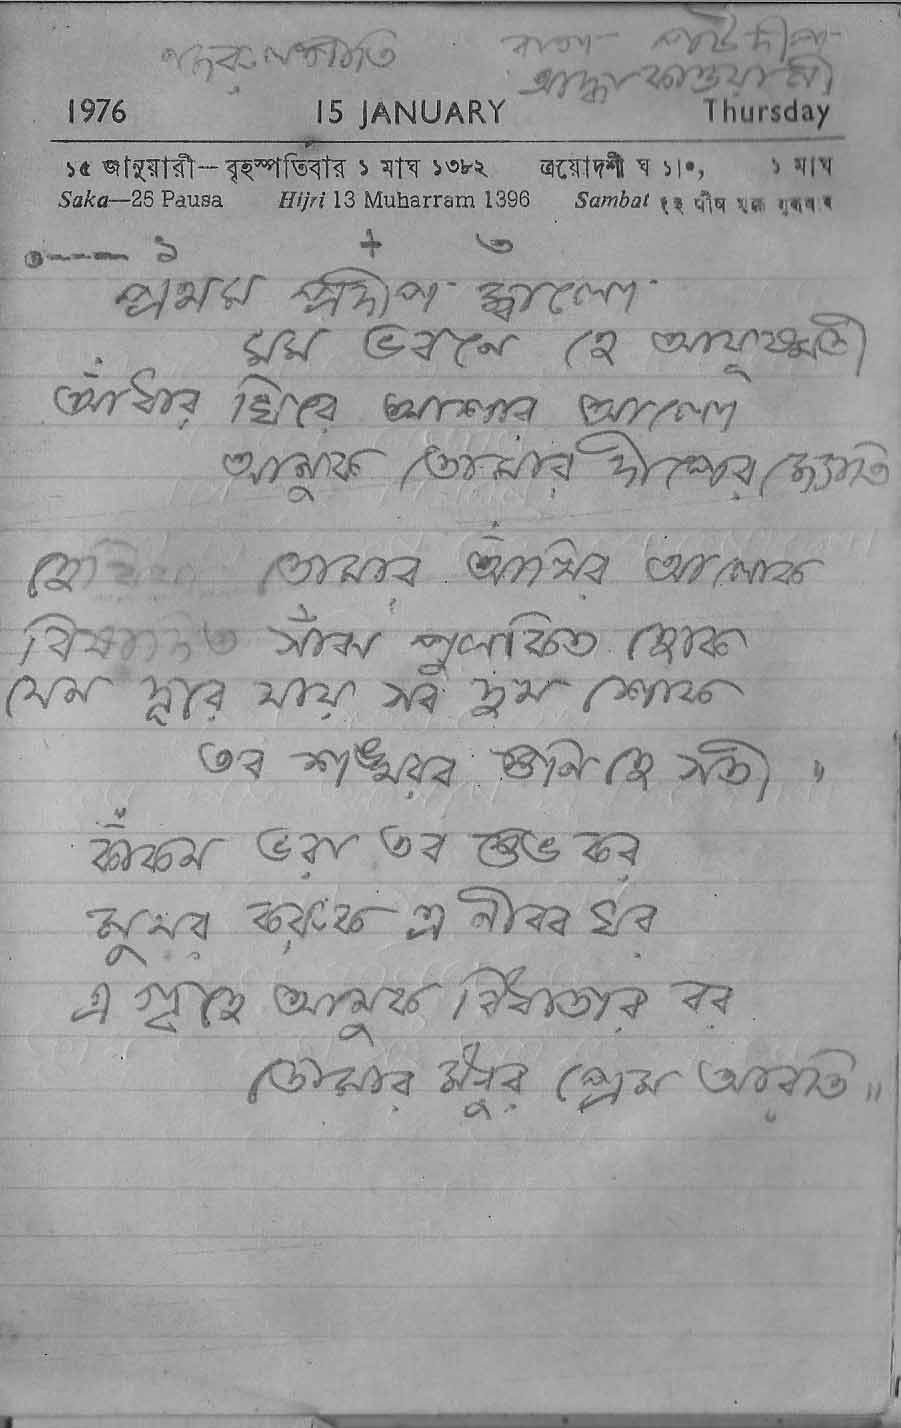 নজরুলগীতি রাগ- পটদীপ-
আদ্ধা কাওয়ালী
1976 15 JANUARY Thursday
১৫ জানুয়ারী—বৃহস্পতিবার ১ মাঘ ১৩৮২ ত্রয়োদশী ঘ ১।০, ১ মাঘ
Saka—25 Pausa Hijri 13 Muharram 1396 Sambat १३ पौष
১ + ৩
প্রথম প্রদীপ জ্বালো
মম ভবনে হে আয়ুষ্মতী
আঁধার ঘিরে আশার আলো
আনুক তোমার দীপের জ্যোতি
হেরিয়া তোমার আঁখির আলোক
বিষাদিত সাঁঝ পুলকিত হোক
যেন দূরে যায় সব দুখ শোক
তব শঙ্খরব শুনি হে সতী ॥
কাঁকন ভরা তব শুভ কর
মুখর করুক এ নীরব ঘর
এ গৃহে আনুক বিধাতার বর
তোমার মধুর প্রেম আরতি ॥